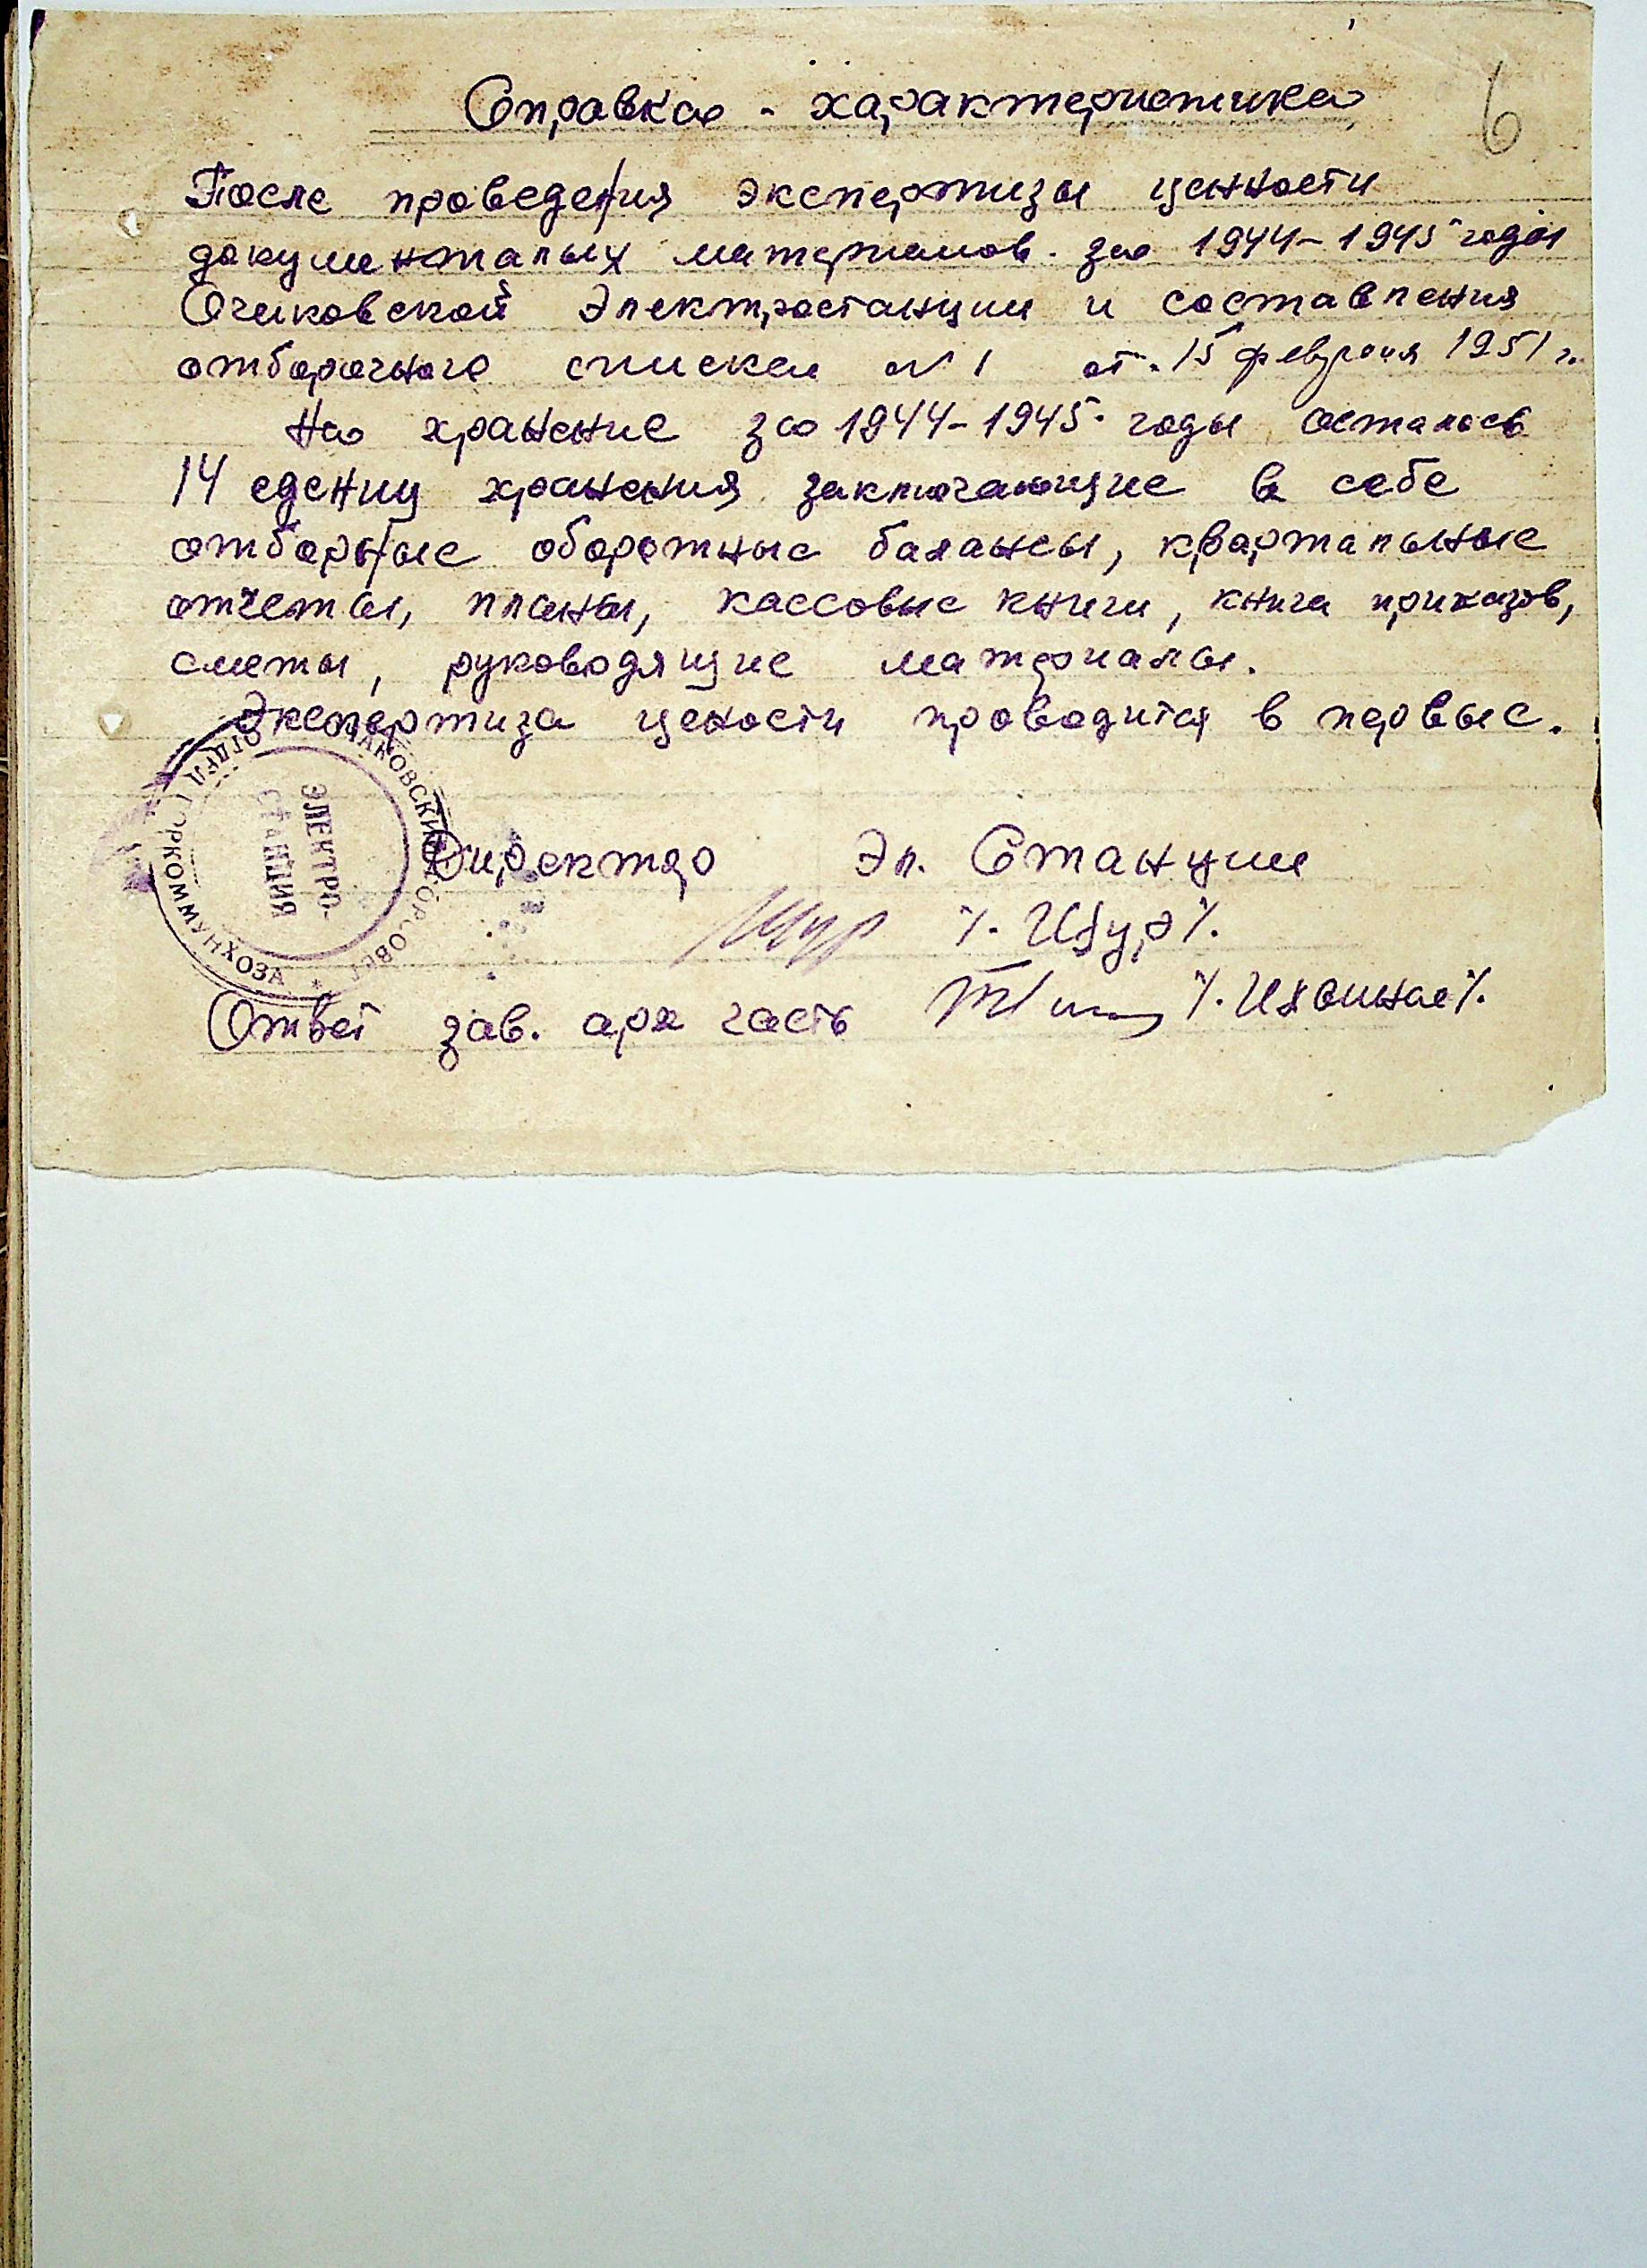 Справка - характеристика
6
После проведения экспертизы ценности
документалых материалов. за 1944-1945 годы
Очаковской Электростанции и составления
отборочного списка № 1 от. 15 февраля 1951 г.
На хранение за 1944-1945 годы осталось
14 едениц хранения заключающие в себе
отборные оборотные балансы, квартальные
отчеты, планы, кассовые книги, книга приказов,
сметы, руководящие материалы.
Экспертиза цености проводится в первые.
ОЧАКОВСКИЙ ГОРСОВЕТ
ОТДЕЛ ГОРКОММУНХОЗА
ЭЛЕКТРО-
СТАНЦИЯ
Директор Эл. Станции
Щур /. Щур /.
Ответ зав. арх часть